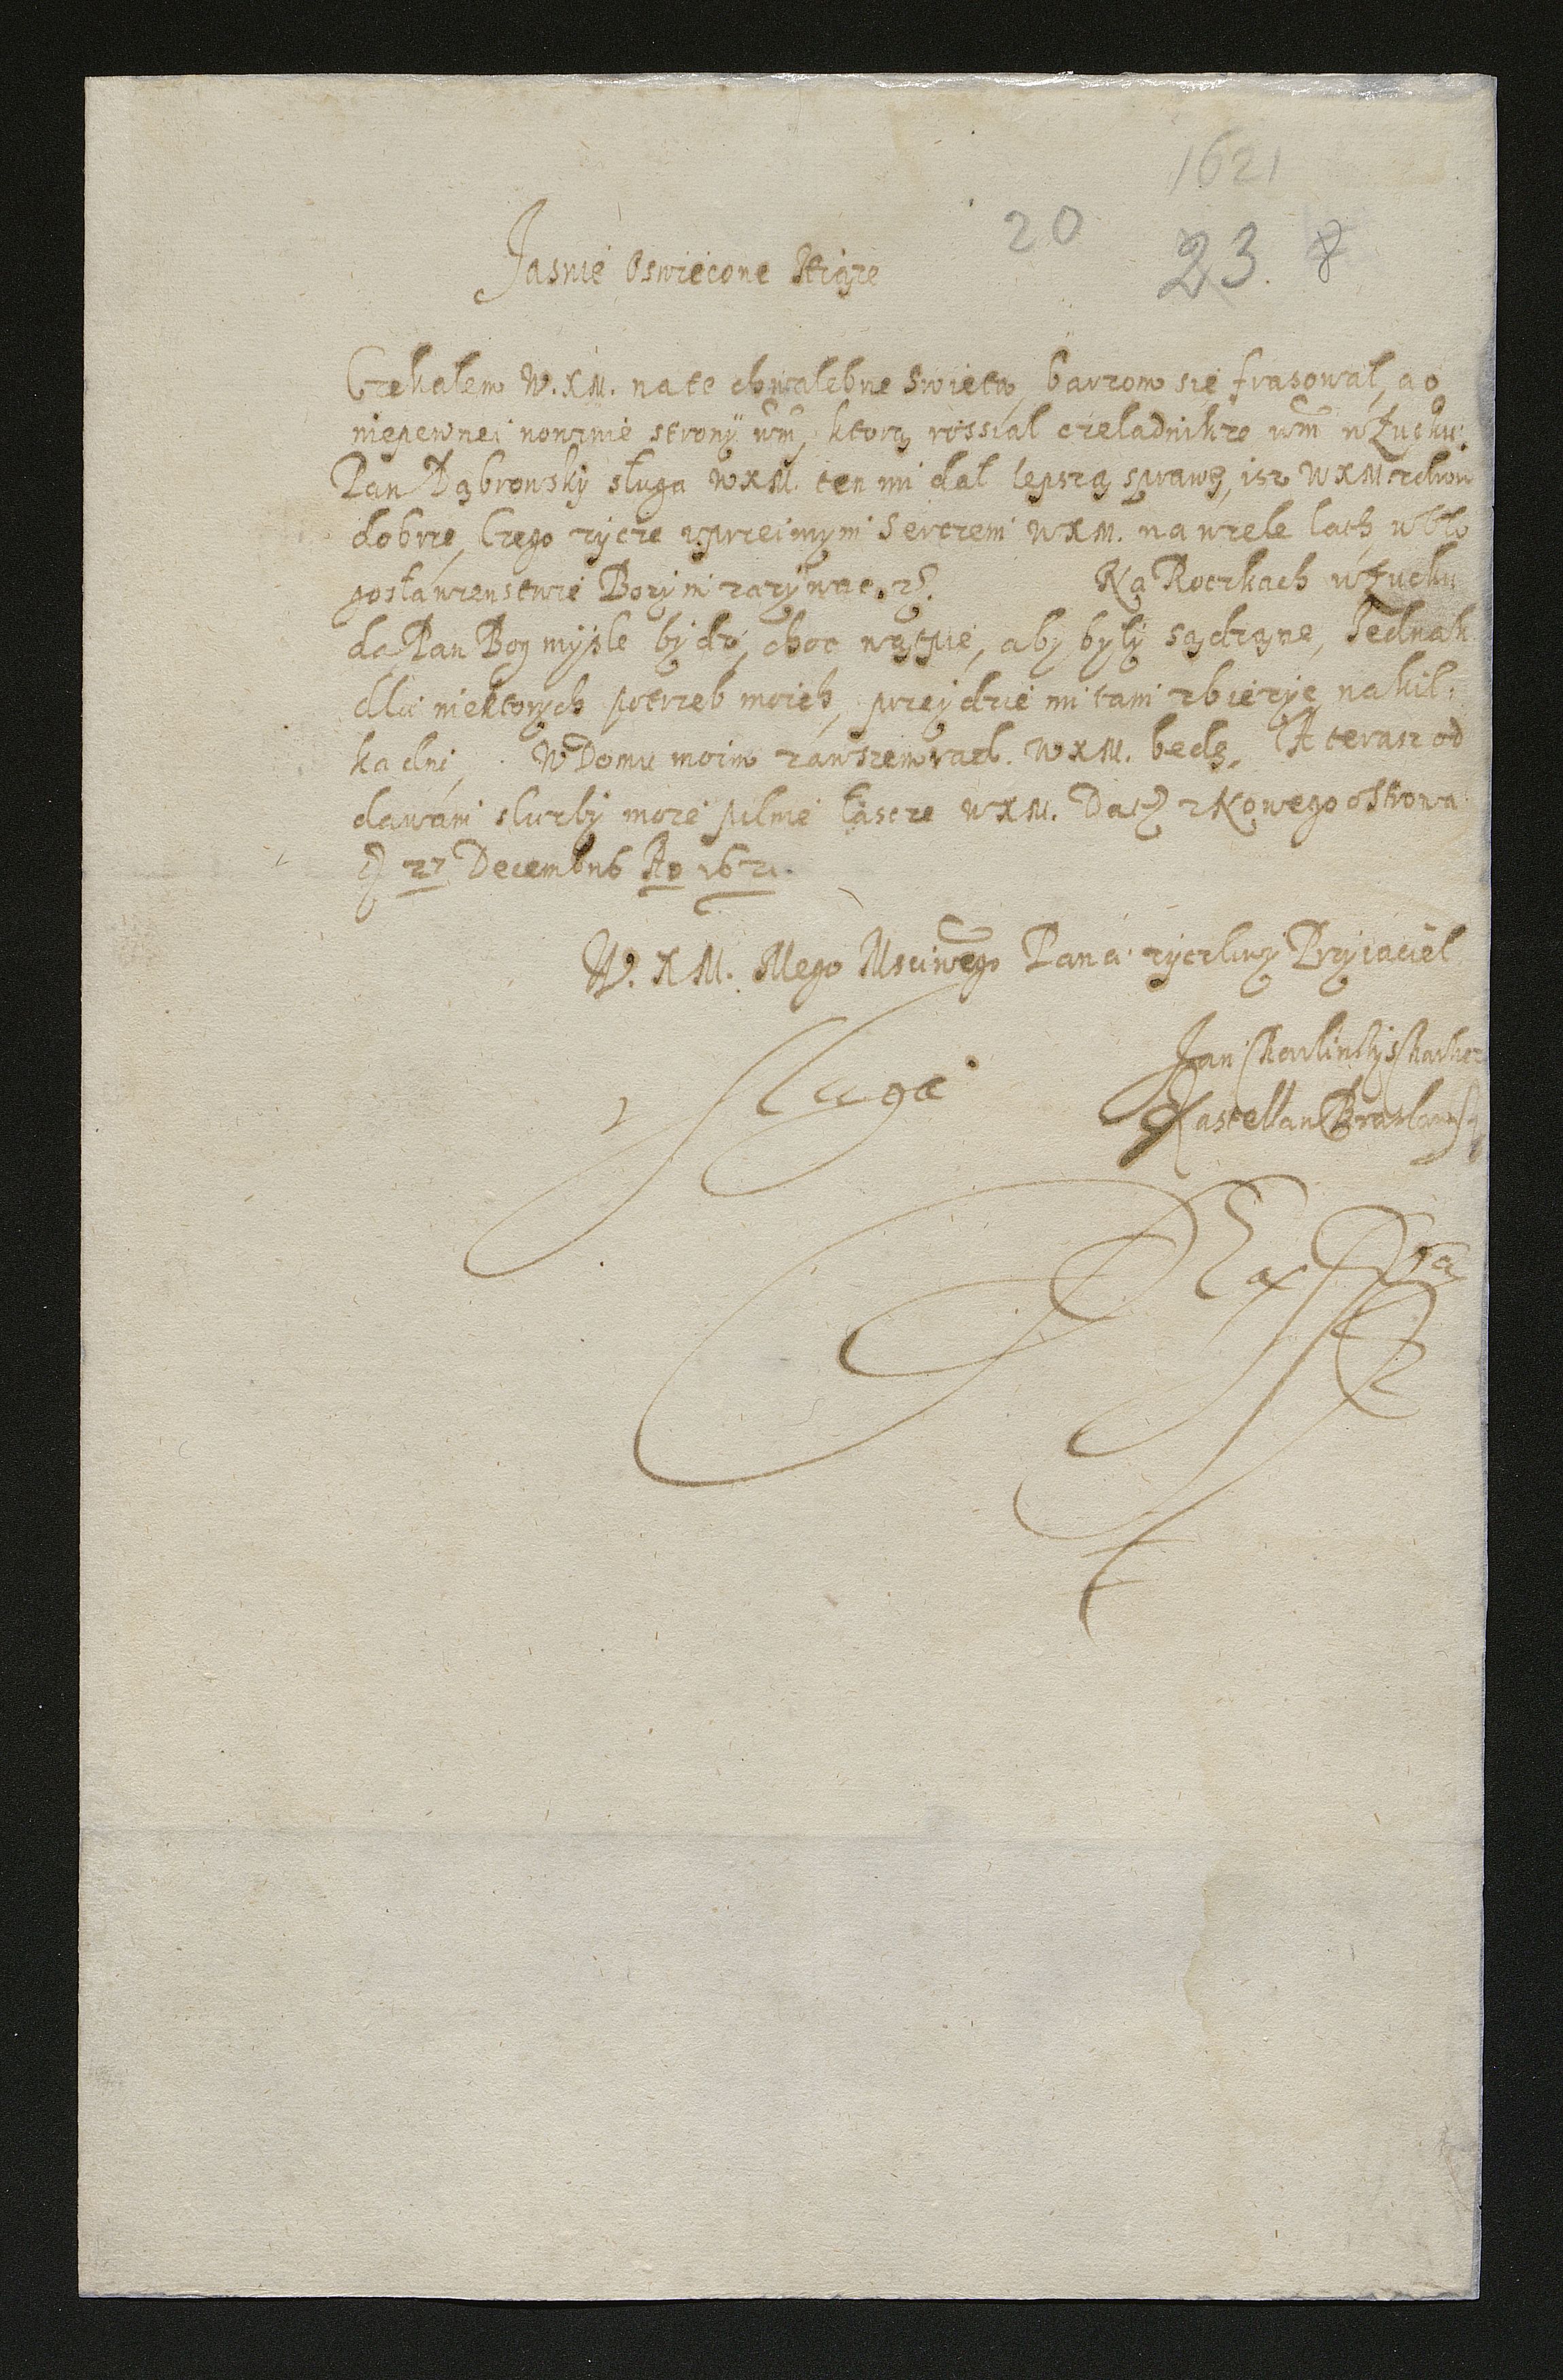 1621
20 23. 8
Jasnie Oswiecone Xiąże
Czekalem W.X.M. na te chwalebne Swieta, barzom sie frasował, a o
niepewnei nowinie strony wm, ktorą rossial czeladnik ze wm w Łucku.
Pan Dąbrowsky sługa WXM. ten mi dal lepszą sprawę, isz WXM zdrow
dobrze, Czego zycze uprzeimym Sercem WXM. na wiele lath, w bło
gosławienstwie Bozym zazywac. Na Roczkach w Łucku
da Pan Bog mysle bydz, choc wątpie, aby były sądzone, Jednak
dla niektorych potrzeb moich, przeydzie mi tam zbiezyc na kil-
ka dni, W Domu moim zawsze WXM. bede. A teraz od
dawam sluzby moie pilnie łasce WXM. Dat z Nowego Ostrowa
D 27 Decembris Ao 1621.
W. X M. Mego Msciwego Pana zyczliwy Przyiaciel
y Sluga
Jan Charlinsky
Kastellan Braslawsky